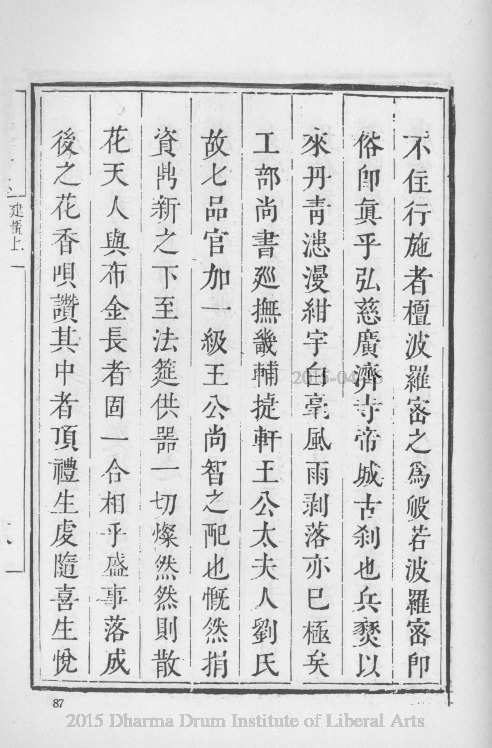 不住行施者檀波羅密之為般若波羅密即
俗即真乎弘慈廣濟寺帝城古刹也兵燹以
來丹青漶漫紺宇白毫風雨剥落亦已極矣
工部尚書廵撫畿輔㨗軒王公太夫人劉氏
故七品官加一級王公尚智之配也慨然捐
資鼎新之下至法筵供器一切燦然然則散
花天人與布金長者固一合相乎盛事落成
後之花香唄讚其中者頂禮生虔隨喜生悅
建置上
87
2015 Dharma Drum Institute of Liberal Arts